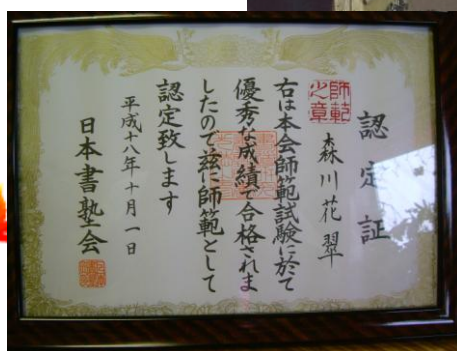 認定証
師範之章
森川花翠
右は本会師範試験に於て
優秀な成績で合格されま
したので茲に師範として
認定致します
平成十八年十月一日
日本書塾会